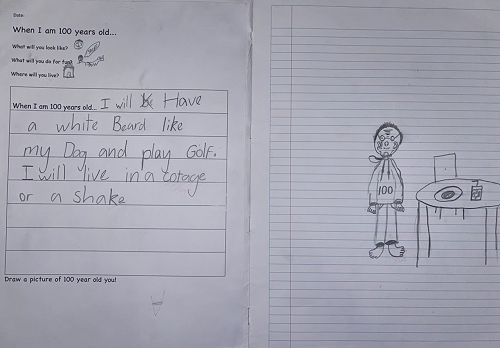 Date:
When I am 100 years old...
What will you look like?
What will you do for fun?
Where will you live?
When I am 100 years old... I will Have
a white Beard like
my Dog and play Golf.
I will live in a cotage
or a shake
Draw a picture of 100 year old you!
100